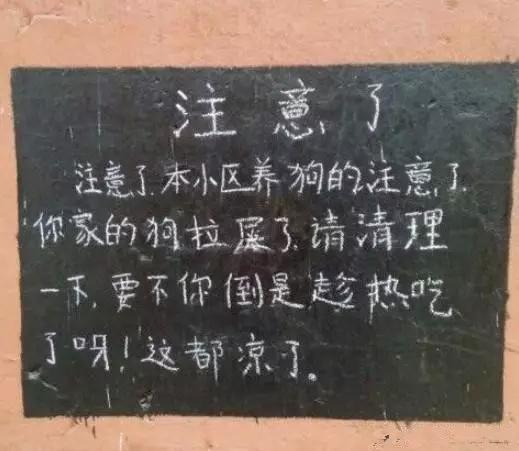 注意了
注意了.本小区养狗的注意了.
你家的狗拉屎了.请清理
一下.要不你倒是趁热吃
了呀!这都凉了。